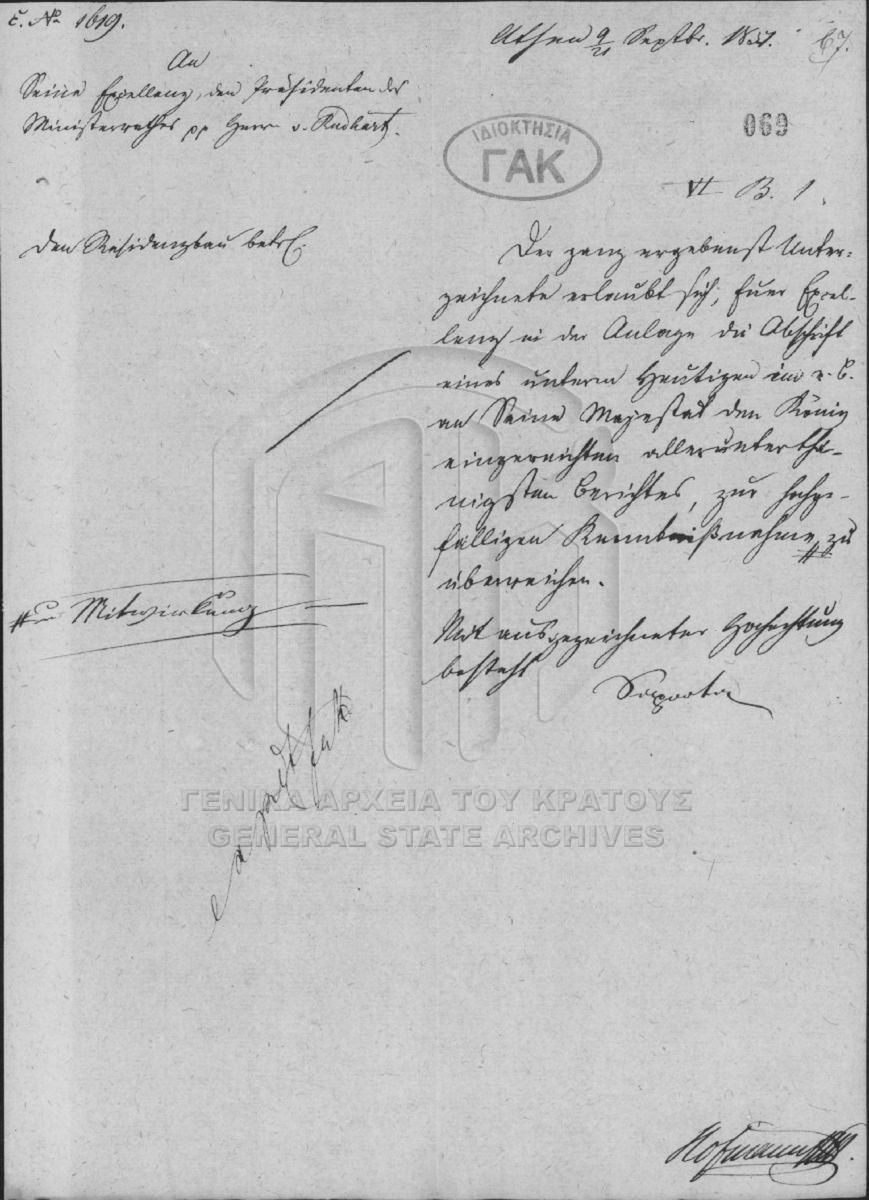 č. No 1619.
Athen 9/21 Septbr. 1837. 67.
An
Seine Excellenz, den Präsidenten des
Ministerrathes pp Herrn v. Rudhart.
ΙΔΙΟΚΤΗΣΙΑ
ΓΑΚ
069
VI B. 1
Den Residenzbau betrf.
Der ganz ergebenst Unter-
zeichnete erlaubt sich, Euer Excel-
lenz in der Anlage die Abschrift
eines unterm Heutigen
an Seine Majestät den König
eingereichten allerunterthä-
nigsten Berichtes, zur hochge-
fälligen Kenntnißnahme zu
überreichen.
Mitwirkung
Mit ausgezeichneter Hochachtung
besteht
Soposta
ΓΕΝΙΚΑ ΑΡΧΕΙΑ ΤΟΥ ΚΡΑΤΟΥΣ
GENERAL STATE ARCHIVES
Hofmann